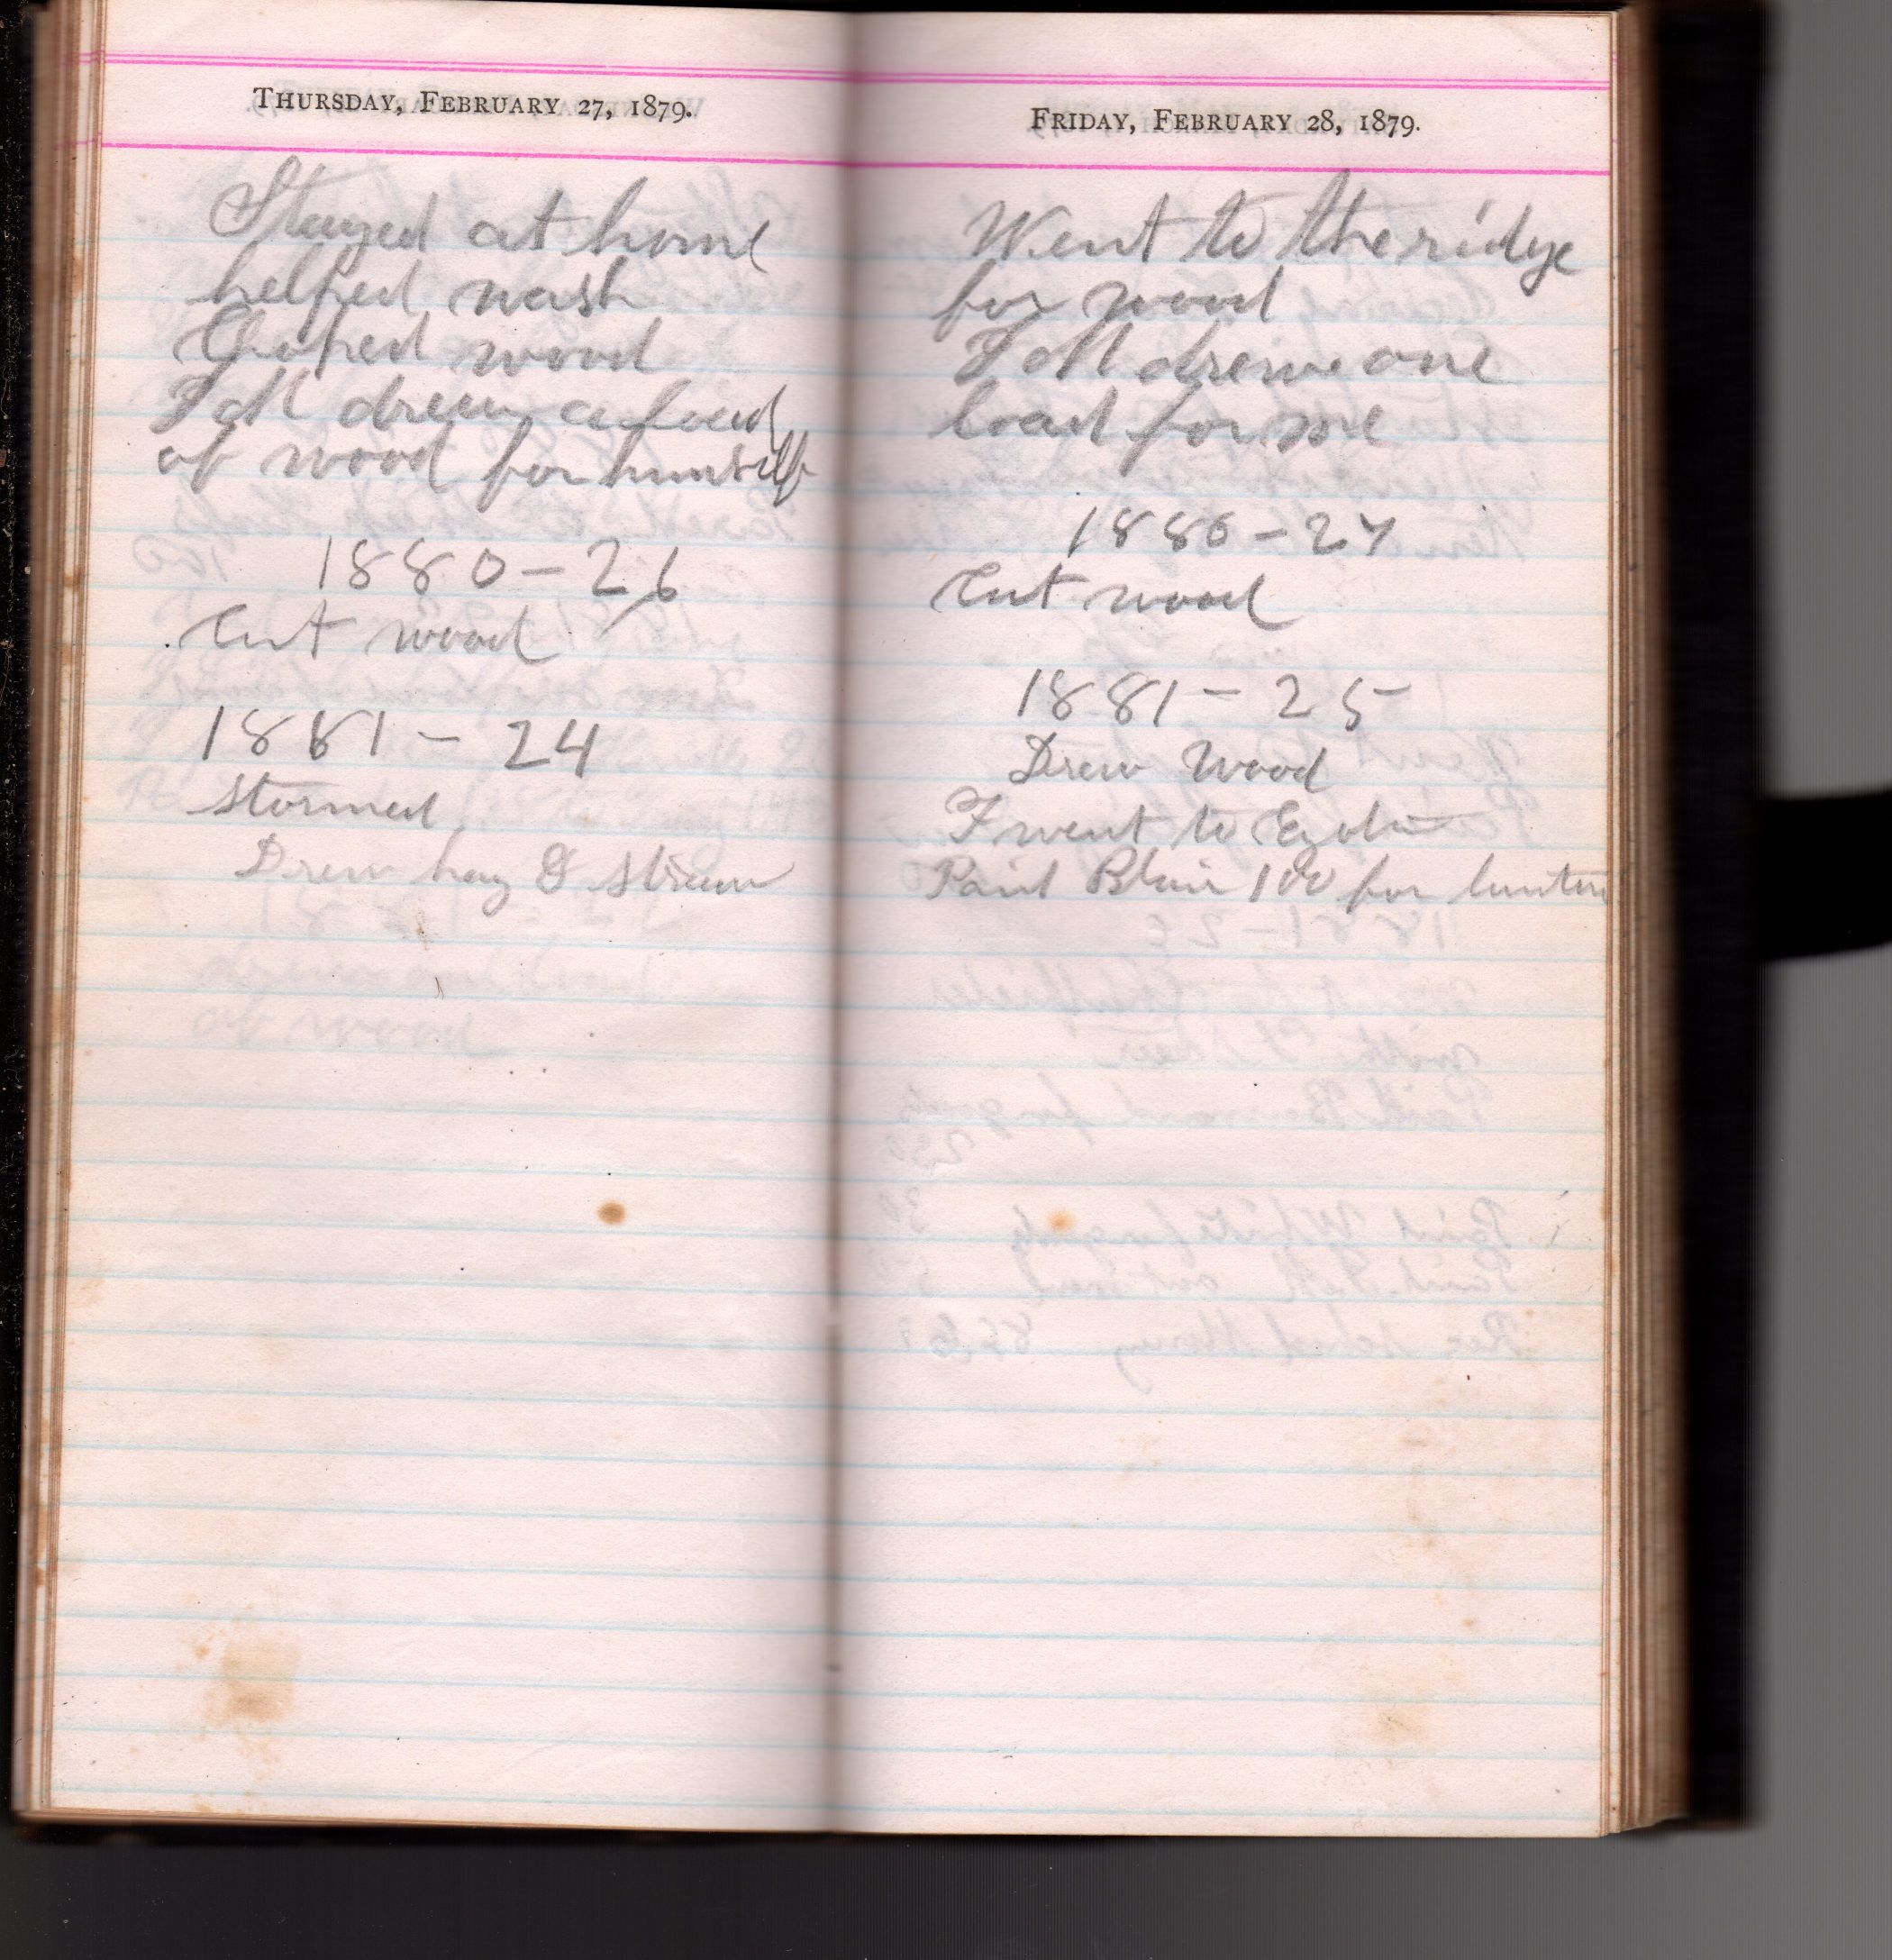 THURSDAY, FEBRUARY 27, 1879.
Stayed at home
helped wash
Choped wood
drew a load
of wood for himself
1880 - 26
Cut wood
1881 - 24
Stormed
Drew hay & straw
FRIDAY, FEBRUARY 28, 1879.
Went to the ridge
for wood
one
load for me
1880 - 27
Cut wood
1881 - 25
Drew Wood
went to
Paid Blair 100 for